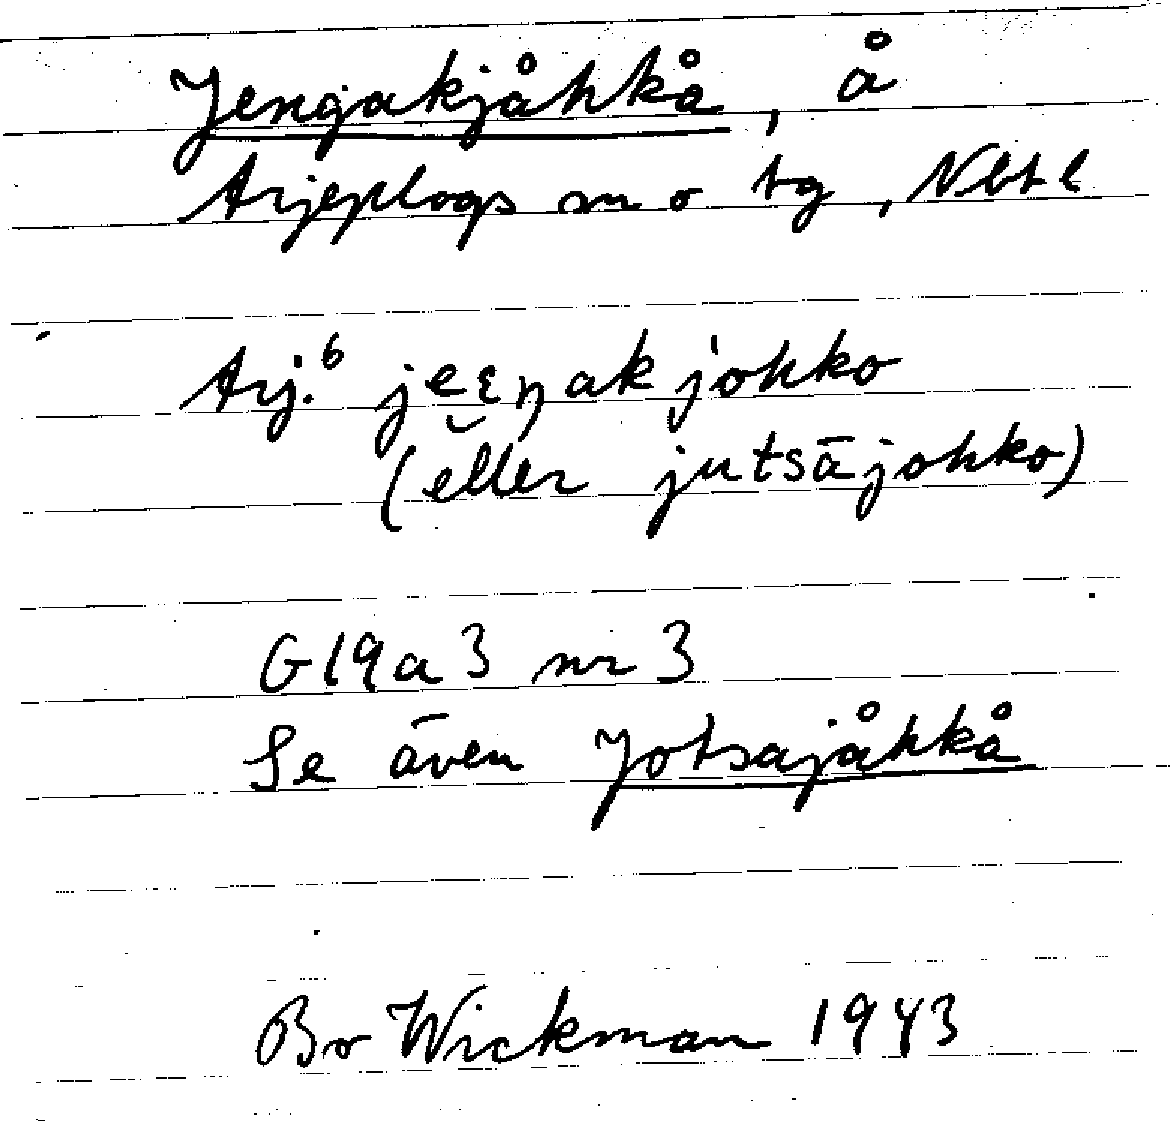 Jengakjåhkå, å
Arjeplogs sn o tg, Nbtl
Arj.⁶ jeε̮ŋakjohko
(eller jutsājohko)
G19a3 nr 3
Se även Jotsajåhkå
Bo Wickman 1943